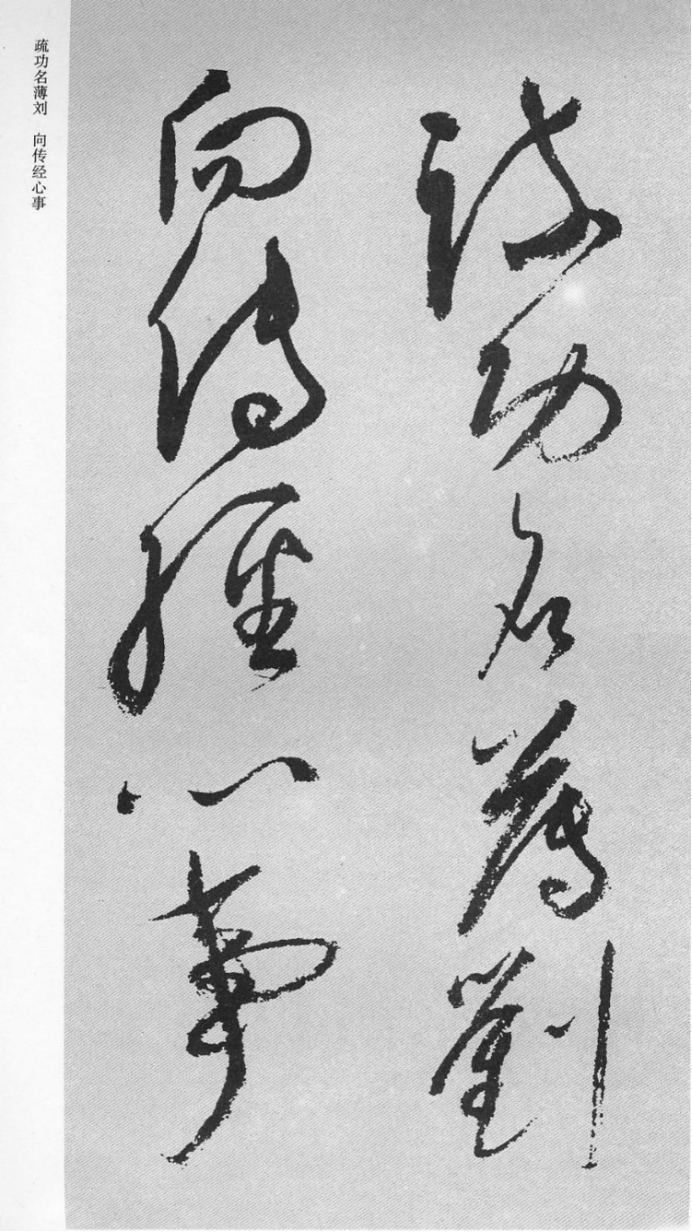 疏功名薄劉
向傳經心事
疏功名薄刘 向传经心事